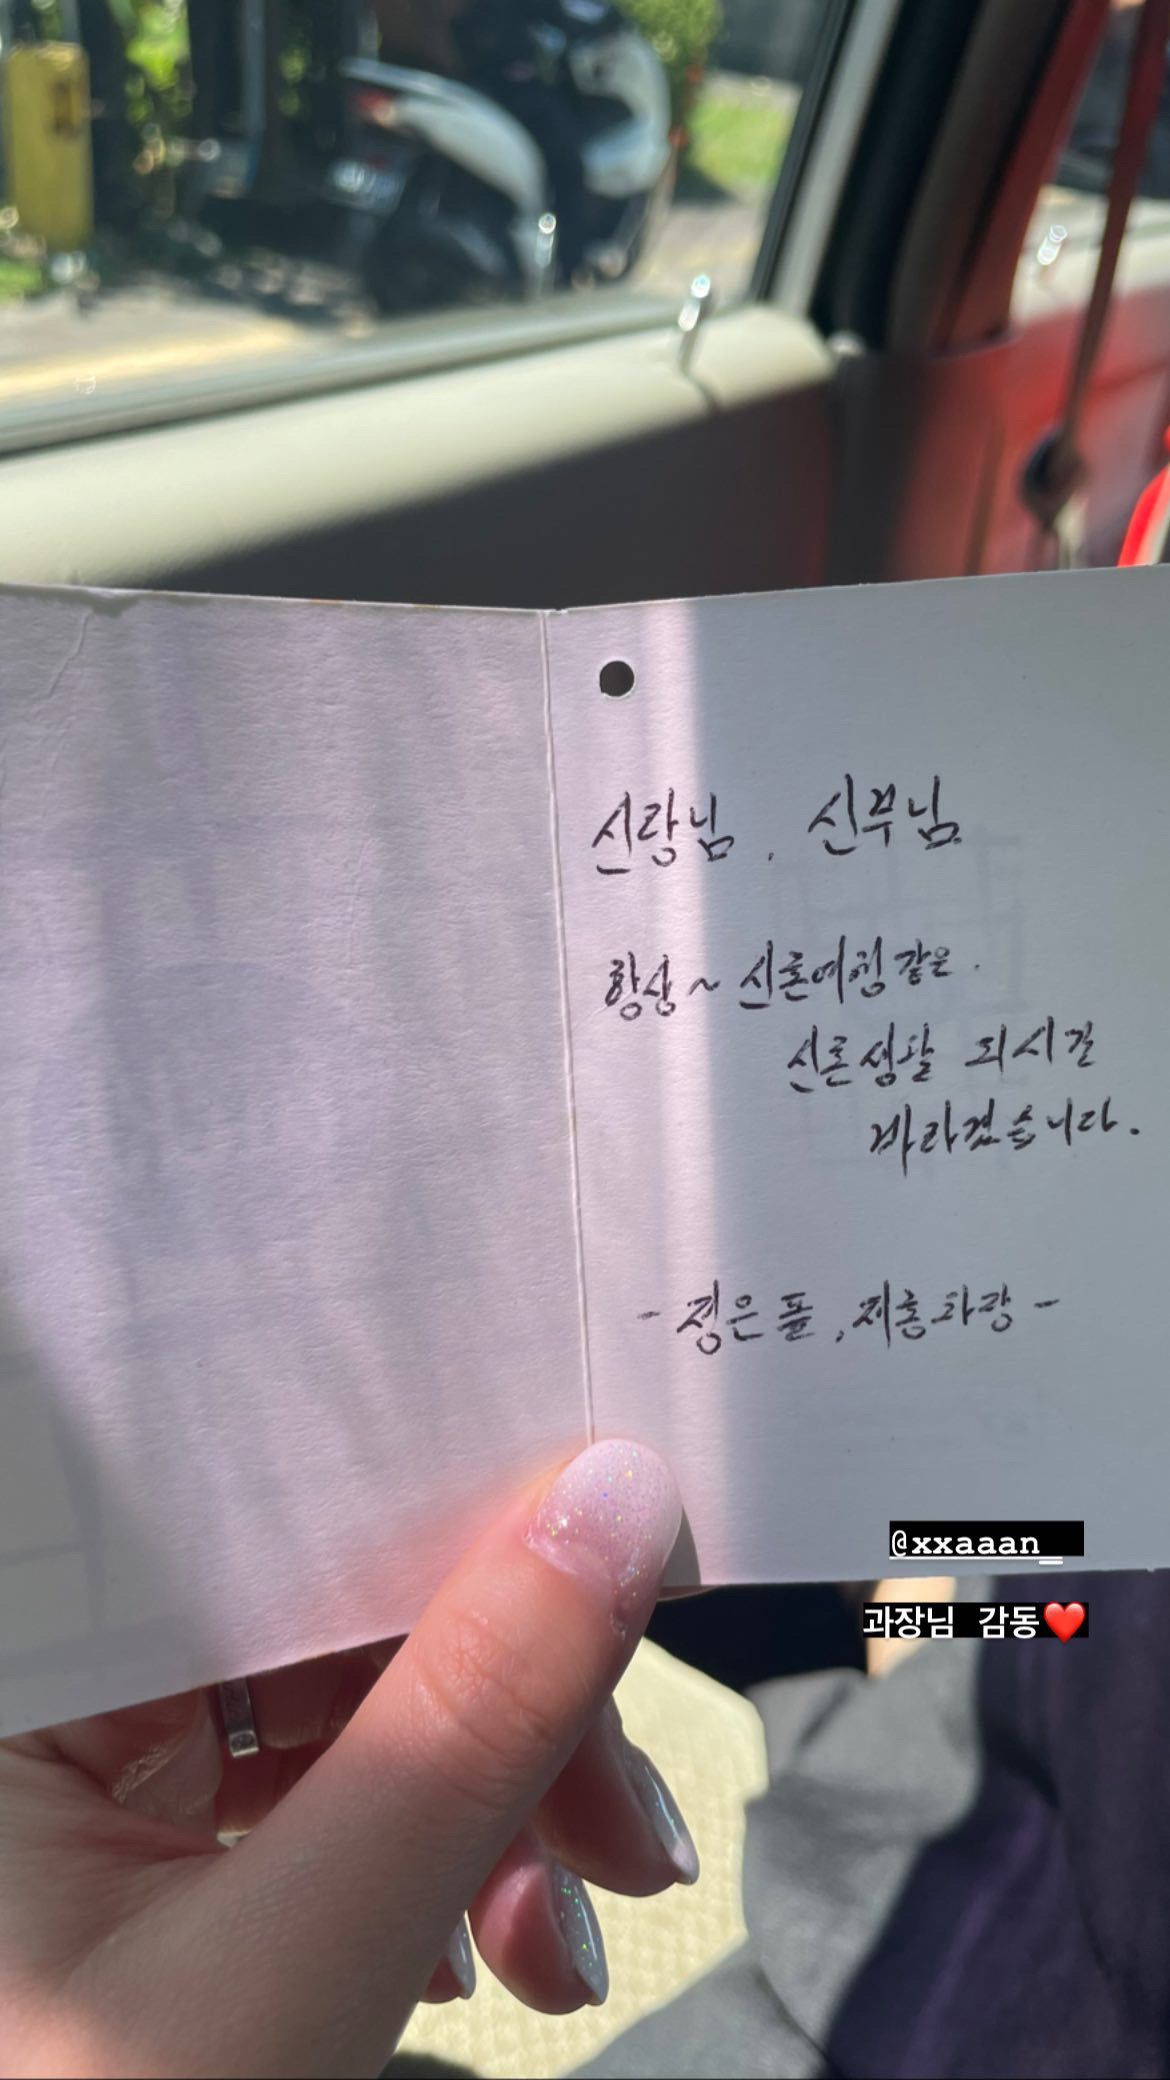 신랑님, 신부님.
항상~ 신혼여행 같은.
신혼생활 되시길
바라겠습니다.
@xxaaan_
과장님 감동❤️